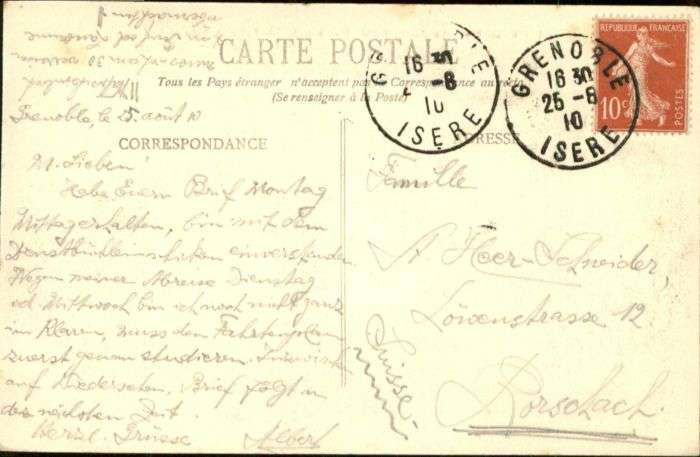 CARTE POSTALE
Tous les Pays étranger n'acceptent pas la Correspondance au recto
(Se renseigner à la Poste)
CORRESPONDANCE
ADRESSE
RÉPUBLIQUE FRANÇAISE
10c
GRENOBLE
16 30
25 - 8
10
ISERE
GRENOBLE
16
- 8
10
ISERE
Grenoble, le 25 août 10
M. Lieben!
Habe Euern Brief Montag
Mittag erhalten, bin mit dem
Dienstbüchleinschicken einverstanden
Wegen meiner Abreise Dienstag
od. Mittwoch bin ich noch nicht ganz
im Klaren, muss den Fahrtenplan
zuerst genau studieren. Inzwischen
auf Wiedersehen. Brief folgt in
der nächsten Zeit.
Herzl. Grüsse Albert
Famille
A Heer-Schneider,
Löwenstrasse 12
Rorschach.
Suisse